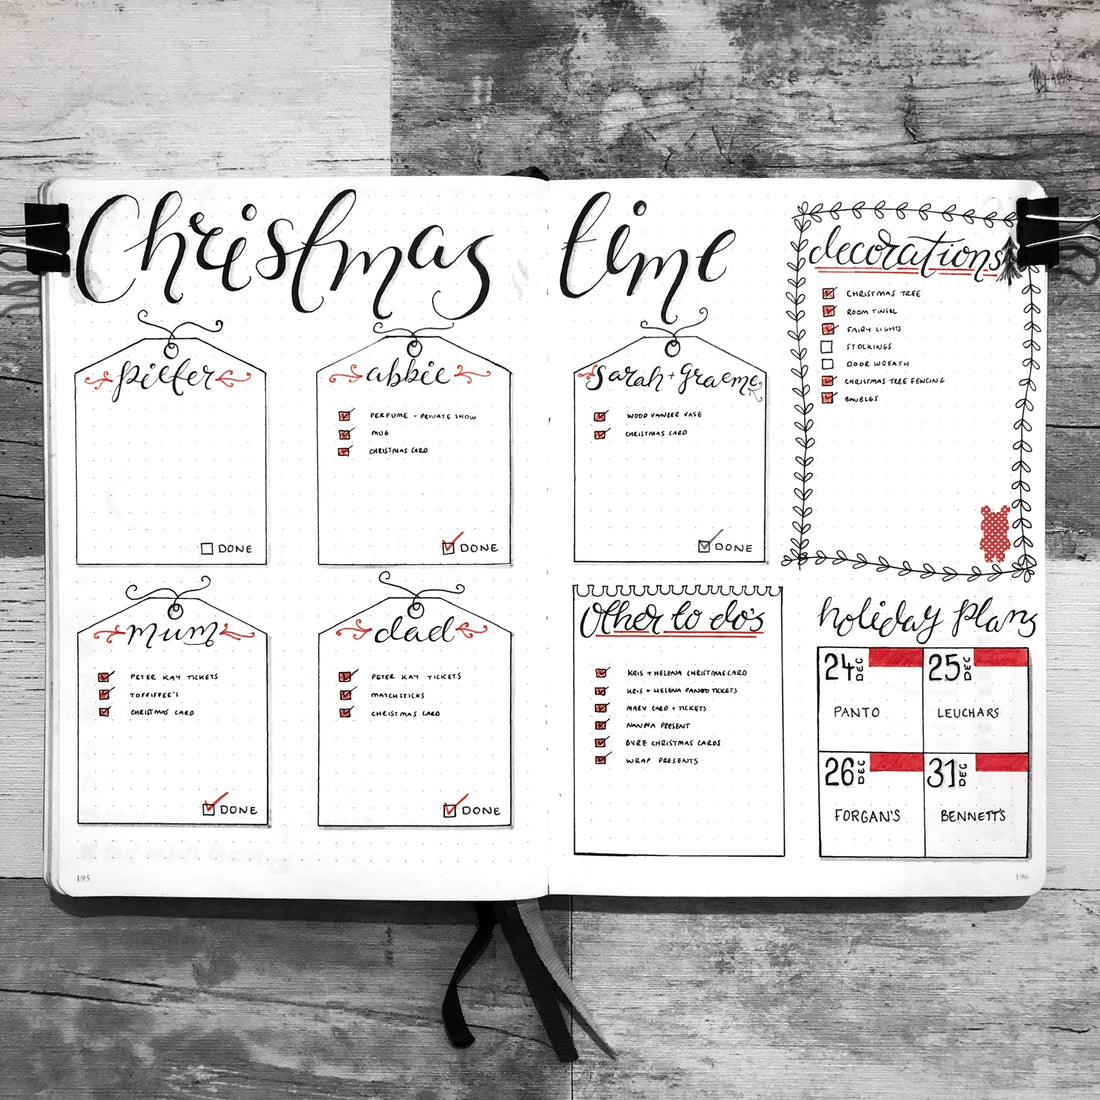 Christmas time
piefer
DONE
abbie
PERFUME - PRIVATE SHOW
MUG
CHRISTMAS CARD
DONE
sarah + graeme
WOOD VANEER VASE
CHRISTMAS CARD
DONE
decorations
CHRISTMAS TREE
ROOM TINSEL
FAIRY LIGHTS
STOCKINGS
DOOR WREATH
CHRISTMAS TREE FENCING
BAUBLES
mum
PETER KAY TICKETS
TOFFIFFEE'S
CHRISTMAS CARD
DONE
dad
PETER KAY TICKETS
MATCHSTICKS
CHRISTMAS CARD
DONE
Other to do's
KRIS + HELENA CHRISTMAS CARD
KRIS + HELENA PANTO TICKETS
MARV CARD + TICKETS
NANNA PRESENT
BYRE CHRISTMAS CARDS
WRAP PRESENTS
holiday plans
24 DEC
PANTO
25 DEC
LEUCHARS
26 DEC
FORGAN'S
31 DEC
BENNETT'S
195
196